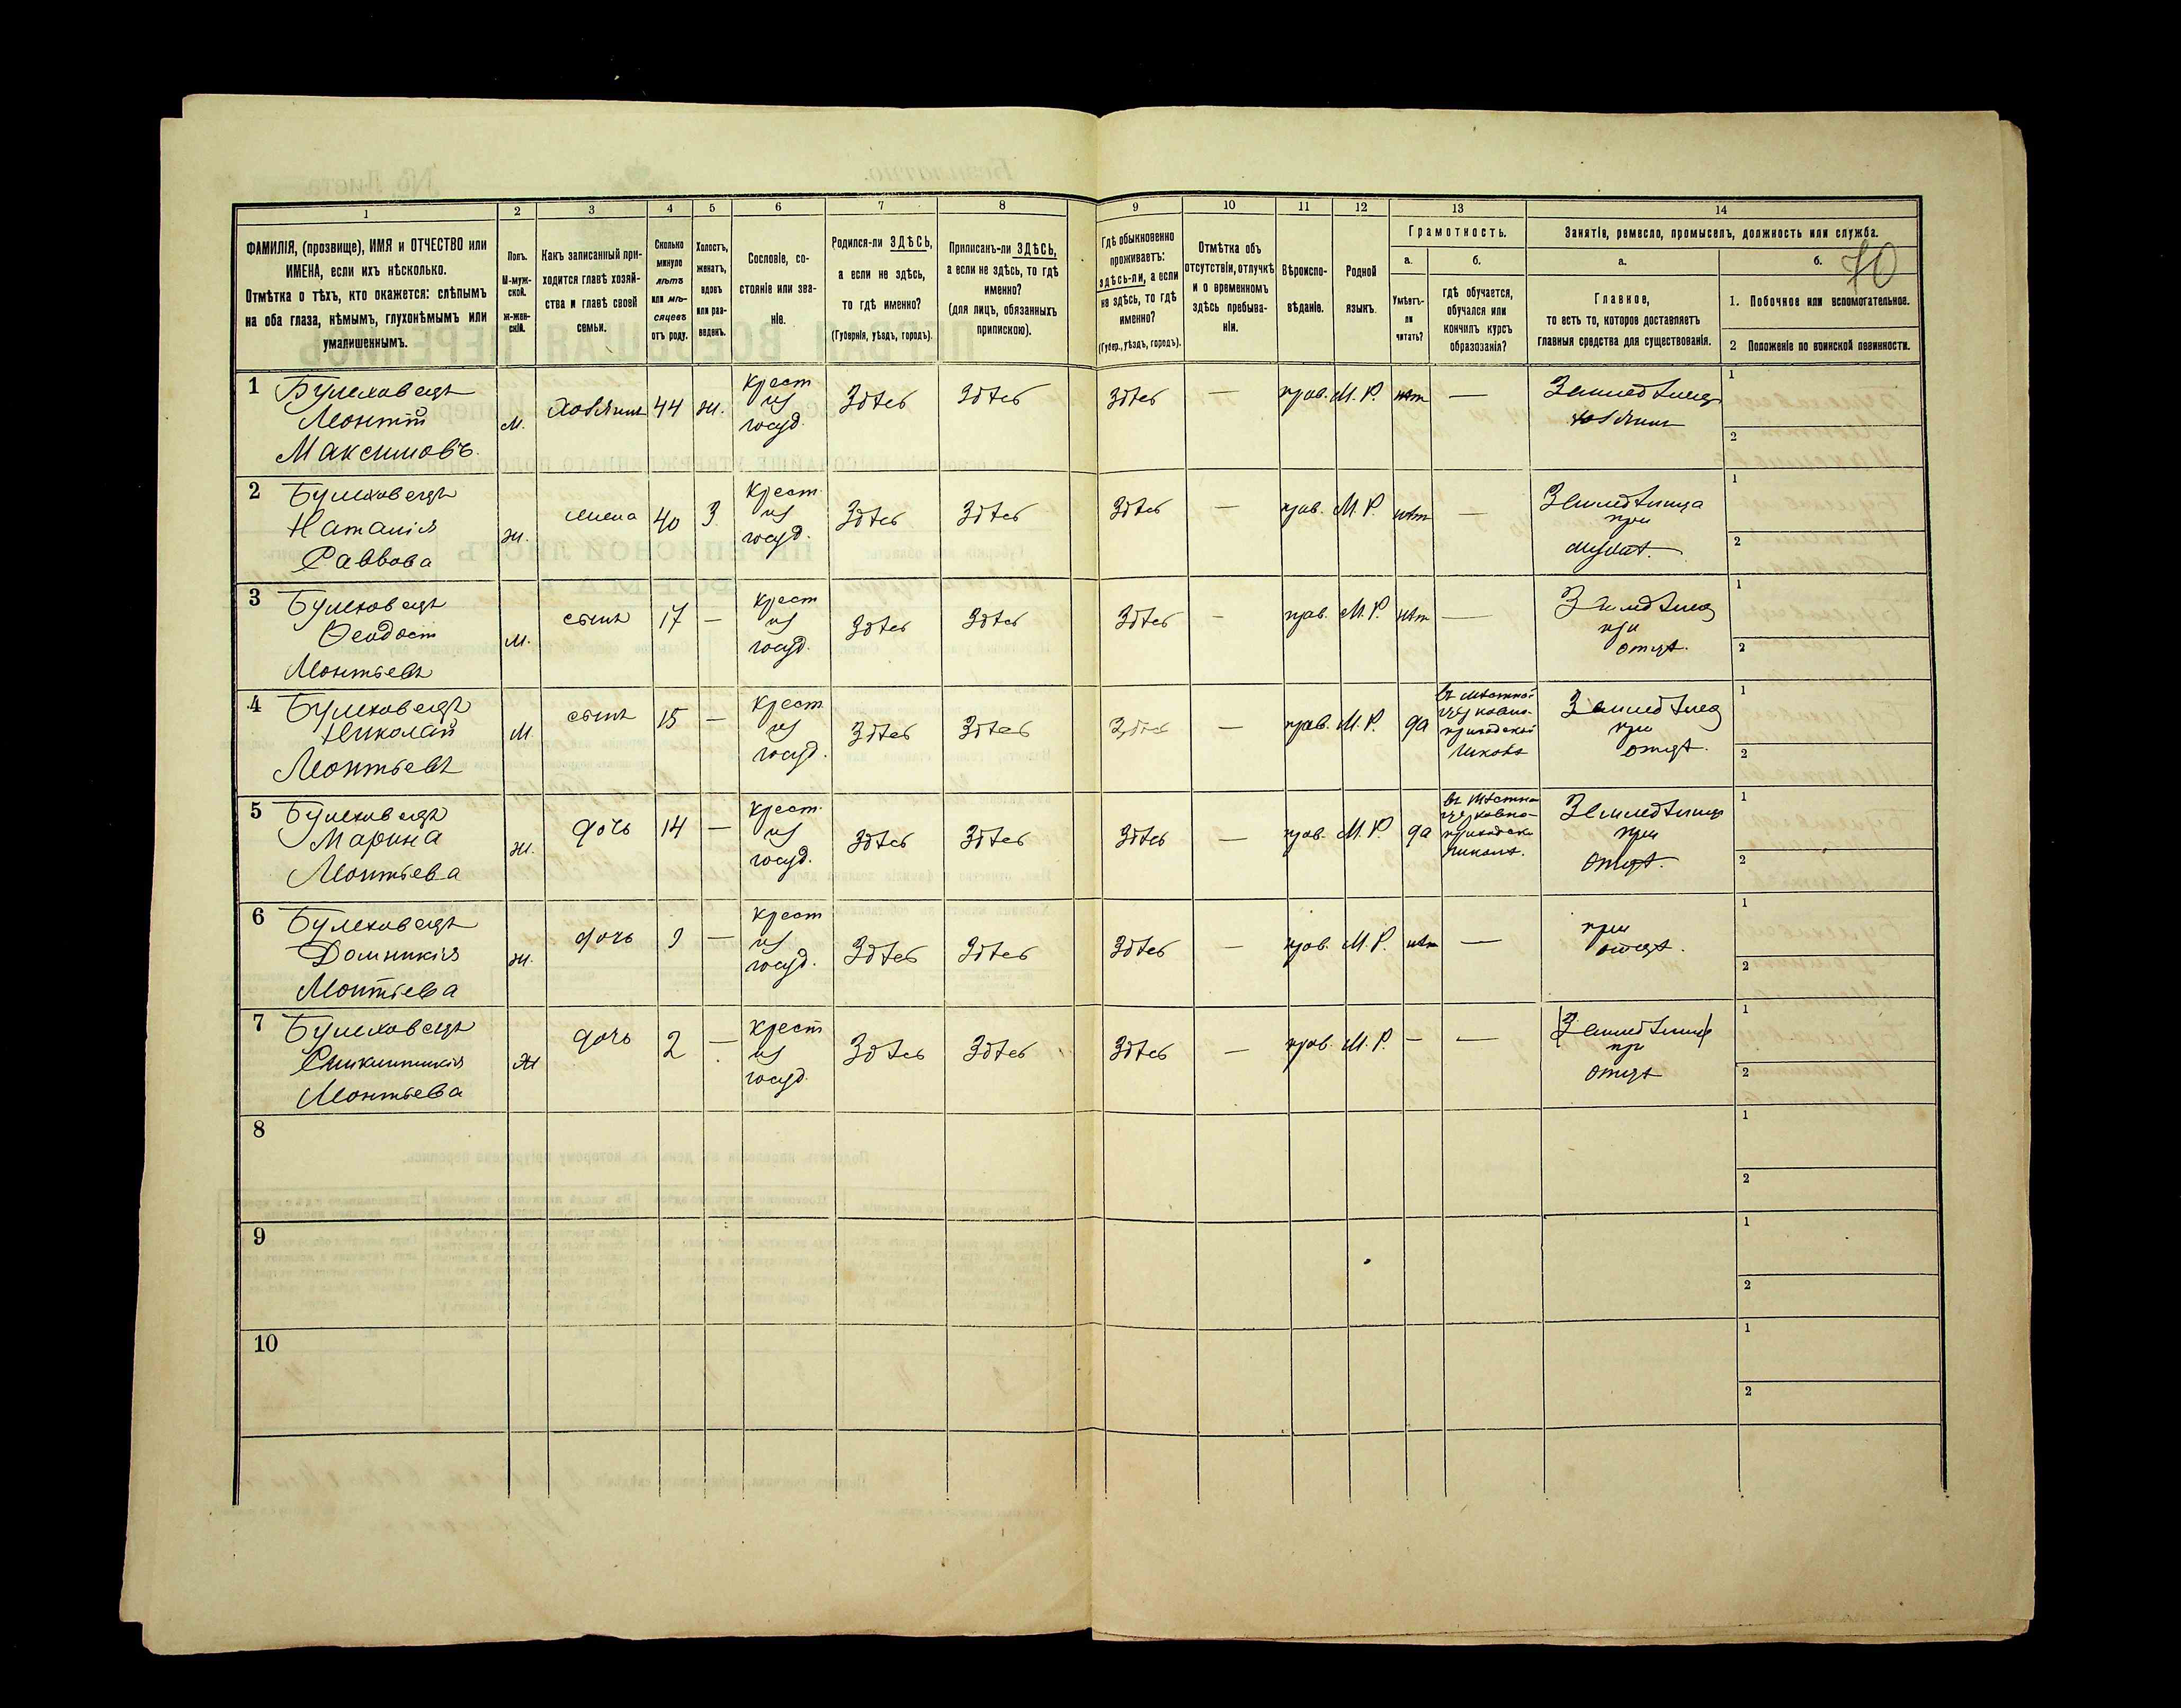 1 2 3 4 5 6 7 8 9 10 11 12 13 14
ФАМИЛІЯ, (прозвище), ИМЯ и ОТЧЕСТВО или
ИМЕНА, если ихъ нѣсколько.
Отмѣтка о тѣхъ, кто окажется: слѣпымъ
на оба глаза, нѣмымъ, глухонѣмымъ или
умалишеннымъ.
Полъ.
М-муж-
ской.
ж-жен-
скій.
Какъ записанный при-
ходится главѣ хозяй-
ства и главѣ своей
семьи.
Сколько
минуло
лѣтъ
или мѣ-
сяцевъ
отъ роду.
Холостъ,
женатъ,
вдовъ
или раз-
веденъ.
Сословіе, со-
стояніе или зва-
ніе.
Родился-ли ЗДѢСЬ,
а если не здѣсь,
то гдѣ именно?
(Губернія, уѣздъ, городъ).
Приписанъ-ли ЗДѢСЬ,
а если не здѣсь, то гдѣ
именно?
(для лицъ, обязанныхъ
припискою).
Гдѣ обыкновенно
проживаетъ:
здѣсь-ли, а если
не здѣсь, то гдѣ
именно?
(Губер., уѣздъ, городъ).
Отмѣтка объ
отсутствіи, отлучкѣ
и о временномъ
здѣсь пребыва-
ніи.
Вѣроиспо-
вѣданіе.
Родной
языкъ.
Грамотность.
а.
Умѣетъ-
ли
читать?
б.
гдѣ обучается,
обучался или
кончилъ курсъ
образованія?
Занятіе, ремесло, промыселъ, должность или служба.
а.
Главное,
то есть то, которое доставляетъ
главныя средства для существованія.
б.
70
1. Побочное или вспомогательное.
2 Положеніе по воинской повинности.
1
Леонтій
Максимовъ.
м.
хозяинъ
44
ж.
крест
из
госуд.
Здѣсь
Здѣсь
Здѣсь
—
прав.
М. Р.
нѣт
—
хозяинъ
1
2
2
Наталія
Саввова
ж.
жена
40
З
крест
из
госуд.
Здѣсь
Здѣсь
Здѣсь
—
прав.
М. Р.
нѣт
—
Землед ѣлица
при
мужѣ.
1
2
3
Феодост
Леонтьевъ
м.
сынъ
17
—
крест
из
госуд.
Здѣсь
Здѣсь
Здѣсь
—
прав.
М. Р.
нѣт
—
при
отцѣ.
1
2
4
Николай
Леонтьевъ
м.
сынъ
15
—
крест
из
госуд.
Здѣсь
Здѣсь
Здѣсь
—
прав.
М. Р.
да
въ мѣстной
церковно-
приходской
школѣ
при
отцѣ.
1
2
5
Марина
Леонтьева
ж.
дочь
14
—
крест.
из
госуд.
Здѣсь
Здѣсь
Здѣсь
—
прав.
М. Р.
да
въ мѣстно
церковно-
приходск
школѣ.
при
отцѣ.
1
2
6
Домникія
Леонтьева
ж.
дочь
9
—
крест
из
госуд.
Здѣсь
Здѣсь
Здѣсь
—
прав.
М. Р.
нѣт
—
при
отцѣ.
1
2
7
Леонтьева
ж
дочь
2
—
крест
из
госуд.
Здѣсь
Здѣсь
Здѣсь
—
прав.
М. Р.
—
—
при
отцѣ
1
2
8
1
2
9
1
2
10
1
2